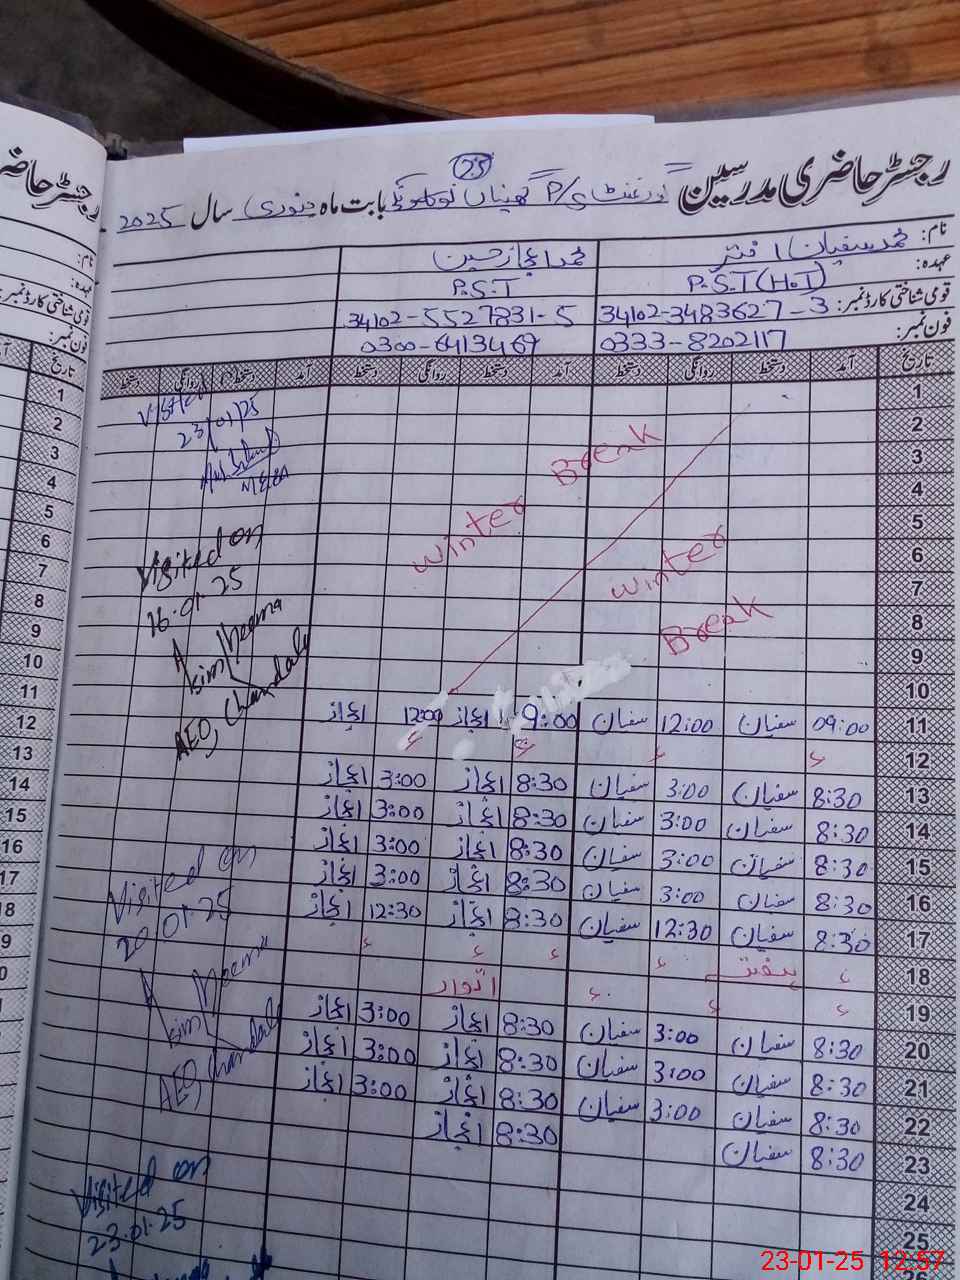 25
رجسٹر حاضری مدرسین گورنمنٹ P/S بابت ماہ جنوری سال 2025
نام: محمد سفیان اختر محمد اعجاز حسین
عہدہ: P.S.T (H.T) P.S.T
قومی شناختی کارڈ نمبر: 34102-3483627-3 34102-5527831-5
فون نمبر: 0333-8202117 0300-6413469
تاریخ آمد دستخط روانگی دستخط آمد دستخط روانگی دستخط آمد دستخط روانگی دستخط
1
2
3
4
5
6
7
8
9
10
Winter Break
Winter
Break
11 09:00 سفیان 12:00 سفیان 9:00 اعجاز 12:00 اعجاز
12 ء ء ء ء
13 8:30 سفیان 3:00 سفیان 8:30 اعجاز 3:00 اعجاز
14 8:30 سفیان 3:00 سفیان 8:30 اعجاز 3:00 اعجاز
15 8:30 سفیان 3:00 سفیان 8:30 اعجاز 3:00 اعجاز
16 8:30 سفیان 3:00 سفیان 8:30 اعجاز 3:00 اعجاز
17 8:30 سفیان 12:30 سفیان 8:30 اعجاز 12:30 اعجاز
18 ء ہفتہ ء ء ء ء
19 ء ء ء اتوار
20 8:30 سفیان 3:00 سفیان 8:30 اعجاز 3:00 اعجاز
21 8:30 سفیان 3:00 سفیان 8:30 اعجاز 3:00 اعجاز
22 8:30 سفیان 3:00 سفیان 8:30 اعجاز 3:00 اعجاز
23 8:30 سفیان 8:30 اعجاز
24
25
Visited
23/01/25
MEEA
Visited on
16.01.25
Asim Cheema
AEO, Chandala
Visited on
20.01.25
Asim Cheema
AEO, Chandala
Visited on
23.01.25
رجسٹر حاضری
نام:
عہدہ:
قومی شناختی کارڈ نمبر:
فون نمبر:
تاریخ
1
2
3
4
5
6
7
8
9
10
11
12
13
14
15
16
17
18
23-01-25 12:57